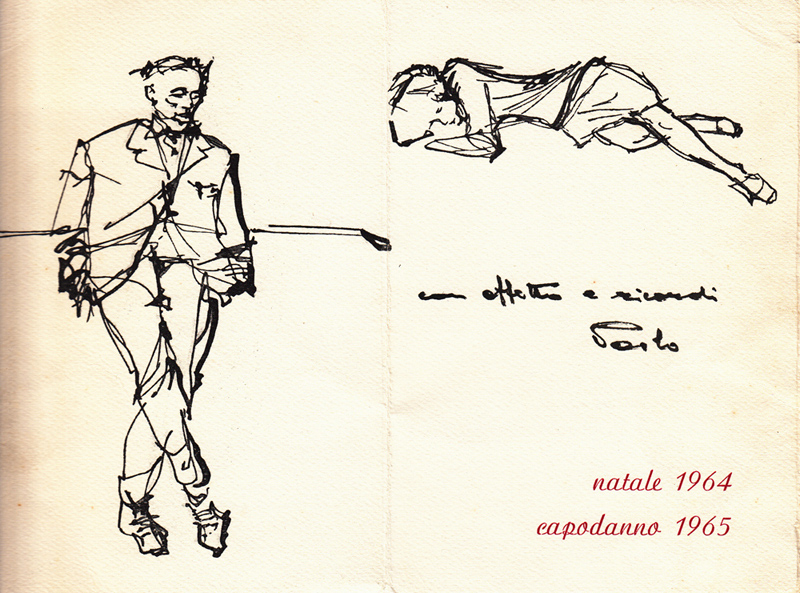 con affetto e ricordi
Paolo
natale 1964
capodanno 1965